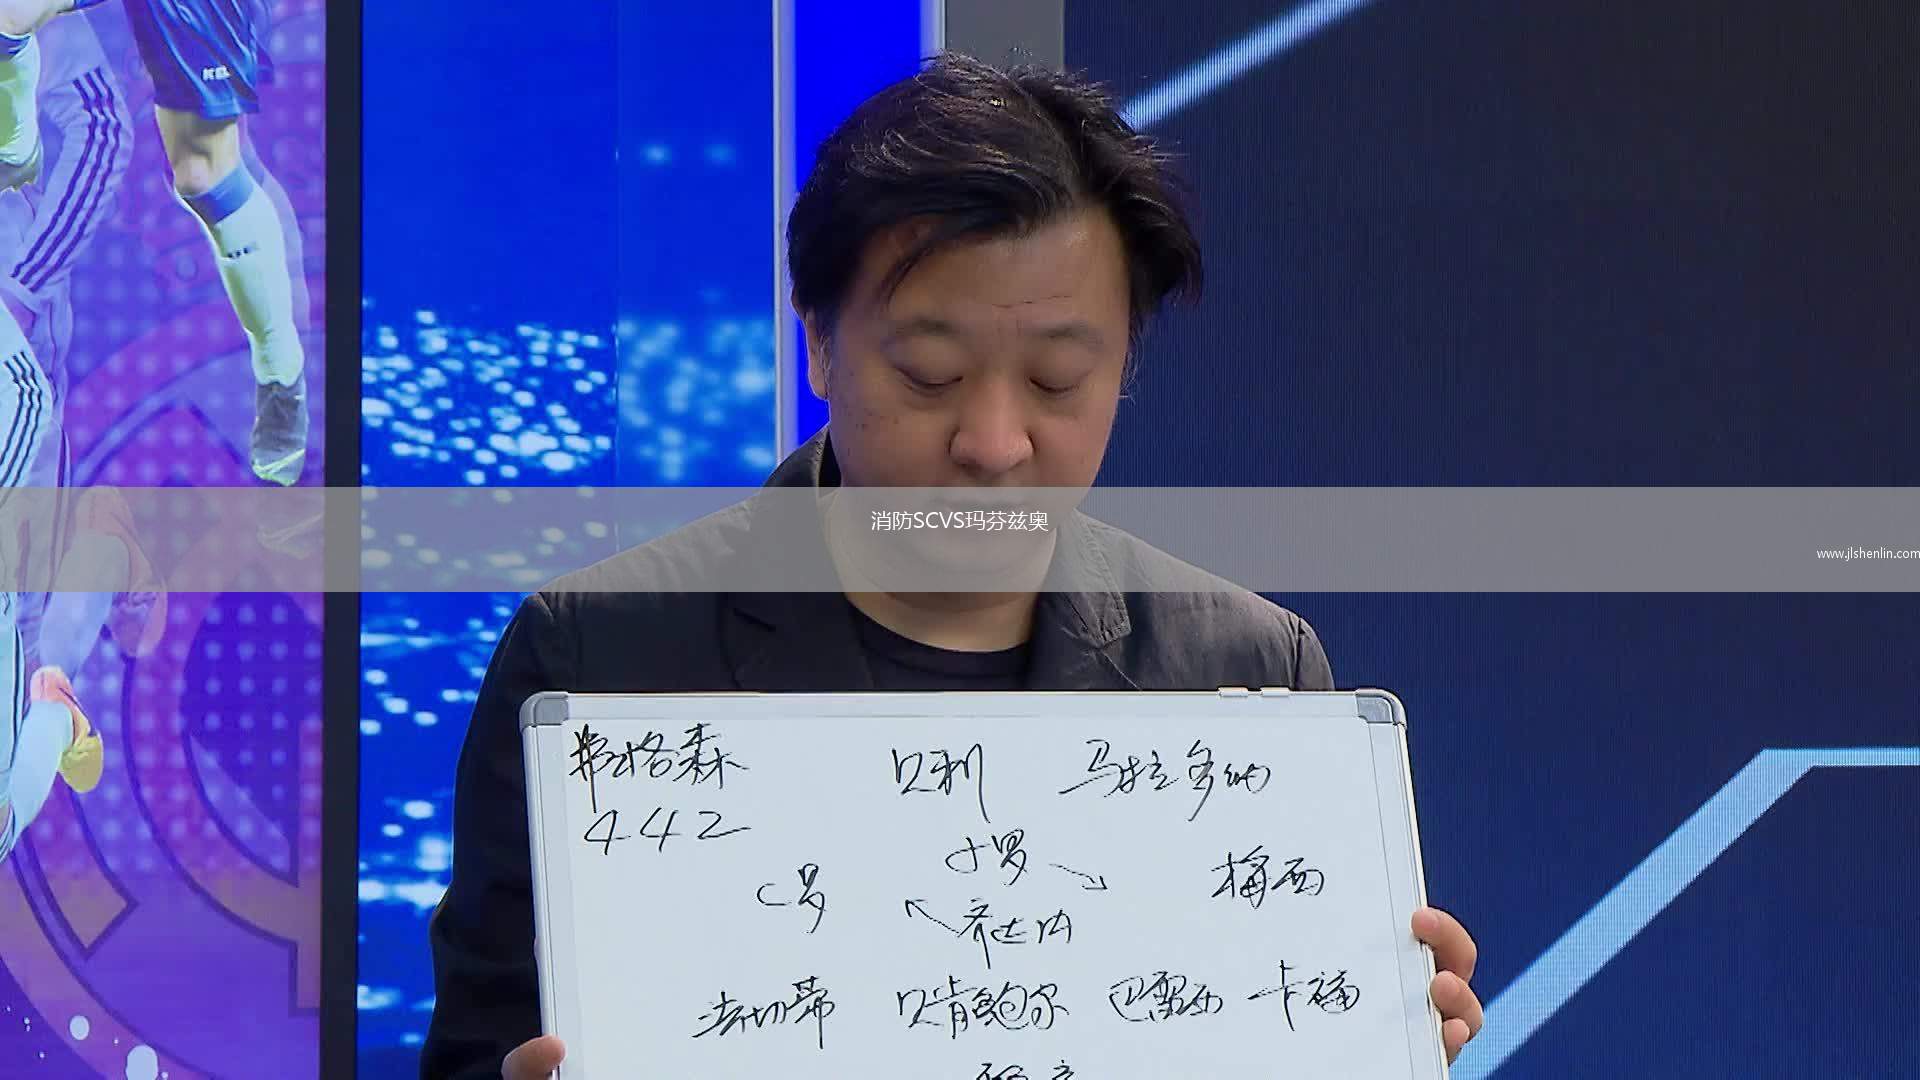 KELME
消防SCVS玛芬兹奥
www.jlshenlin.com
弗格森 贝利 马拉多纳
442
小罗
C罗 梅西
齐达内
法切蒂 贝肯鲍尔 巴雷西 卡福